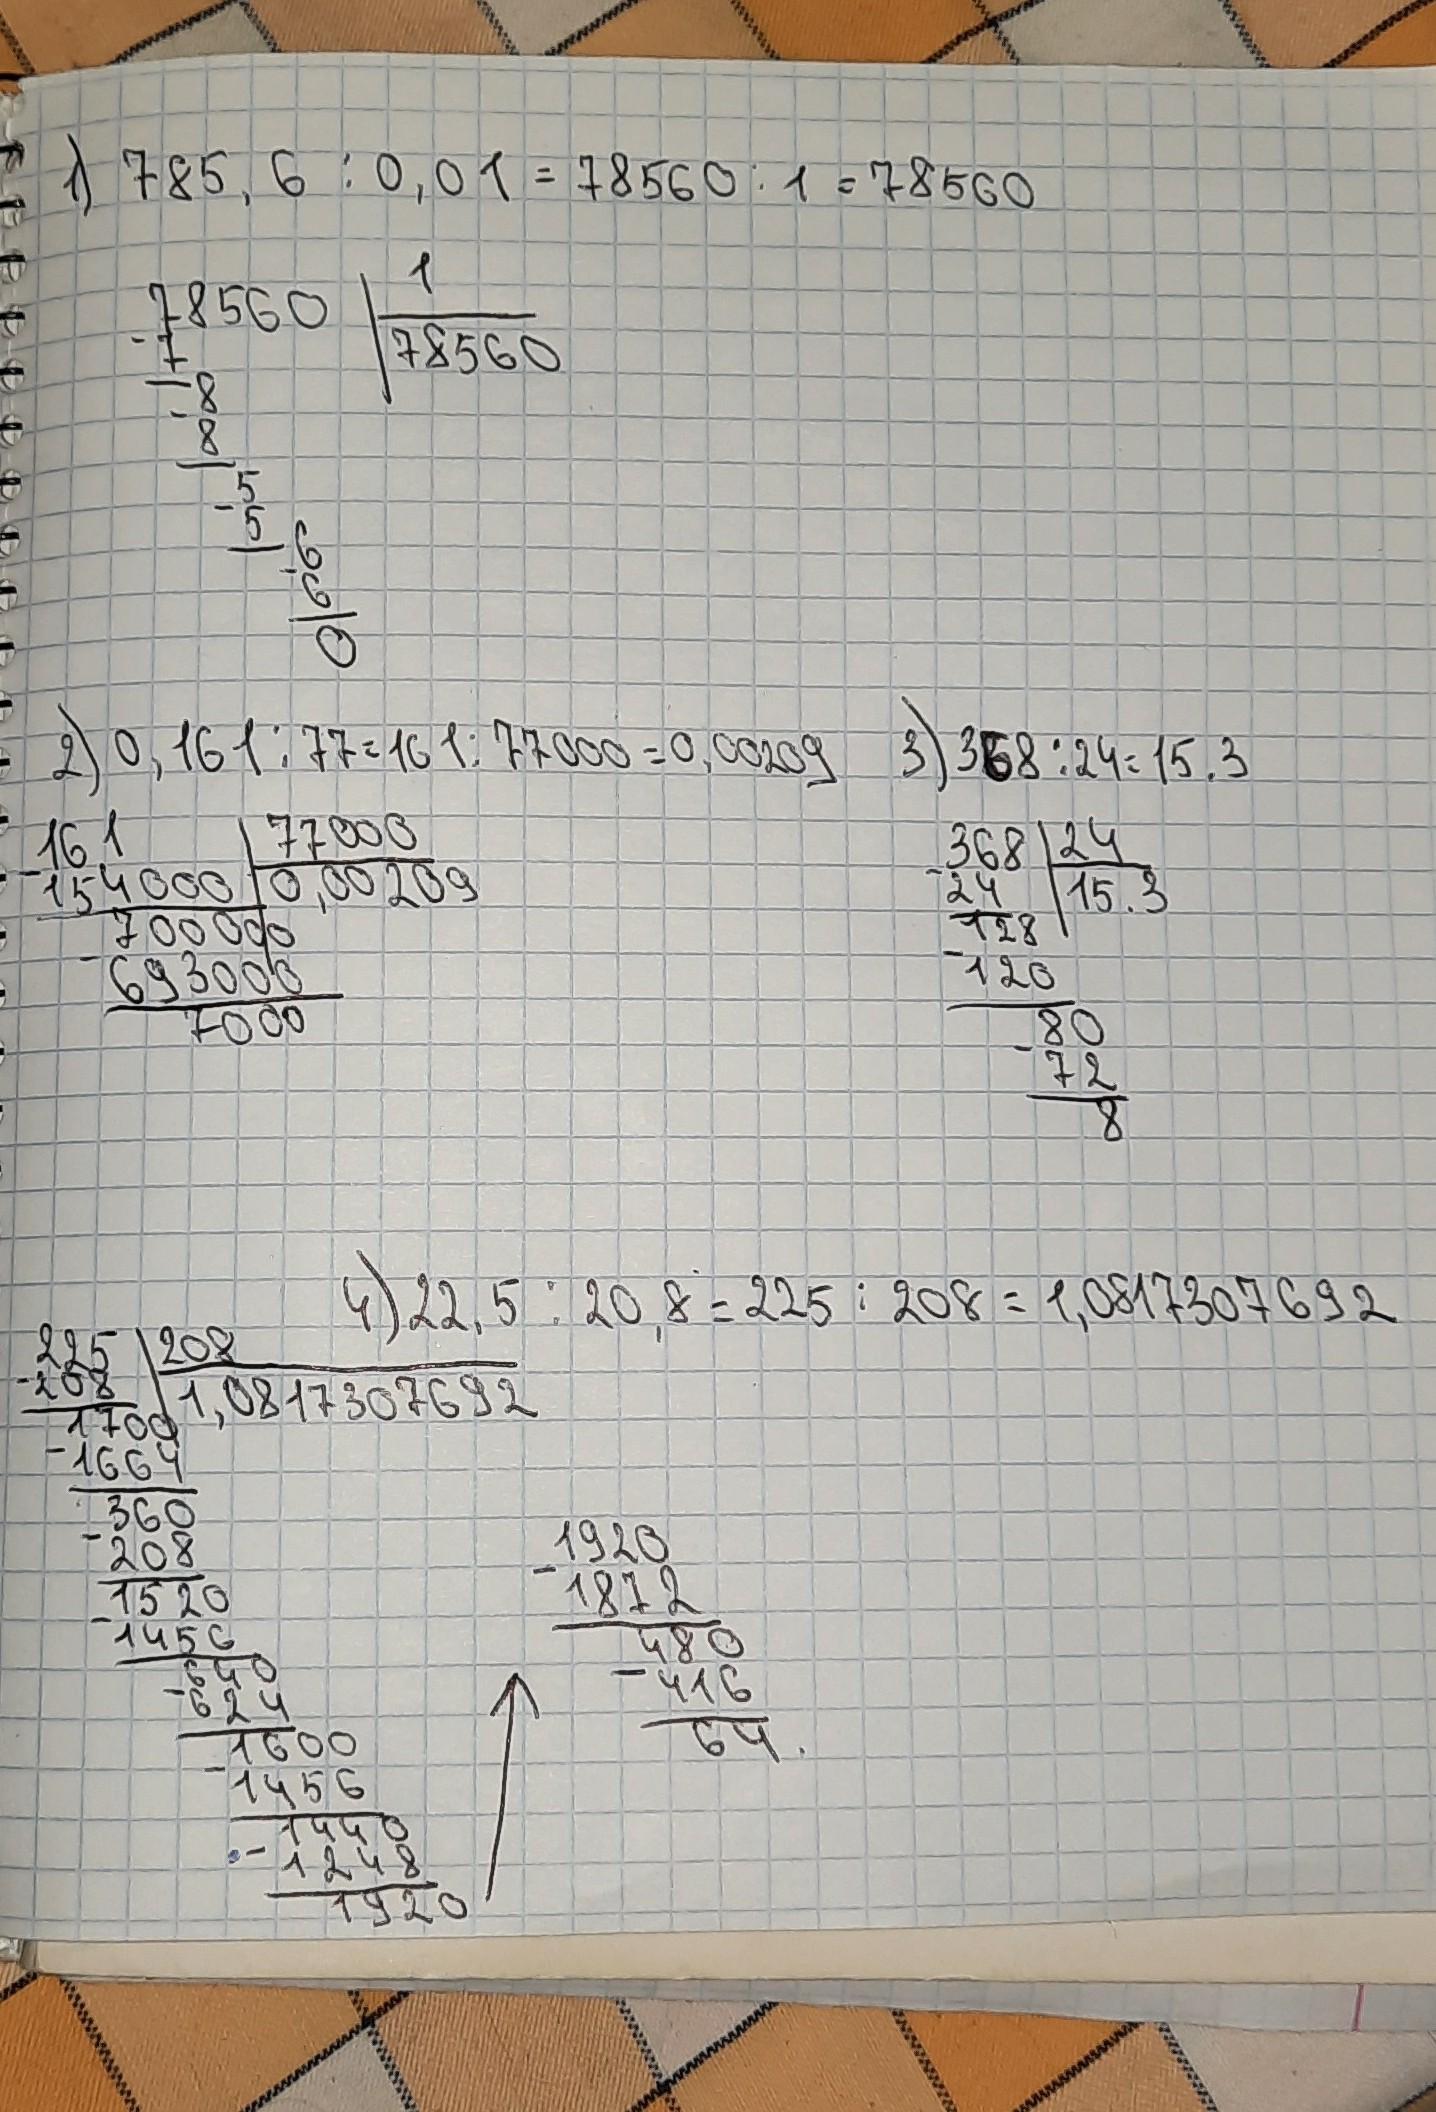 1) 785,6 : 0,01 = 78560 : 1 = 78560
78560 1
-7 78560
8
-8
5
-5
6
-6
0
2) 0,161 : 77 = 161 : 77000 = 0,00209
161 77000
-154000 0,00209
700000
-693000
7000
3) 368 : 24 = 15.3
368 24
-24 15.3
128
-120
80
-72
8
4) 22,5 : 20,8 = 225 : 208 = 1,0817307692
225 208
-208 1,0817307692
1700
-1664
360
-208
1520
-1456
640
-624
1600
-1456
1440
-1248
1920
1920
-1872
480
-416
64.